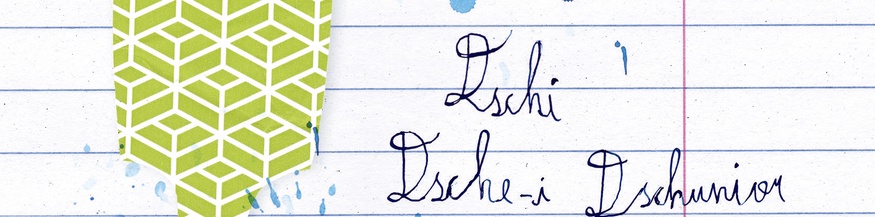 Dschi
Dsche-i Dschunior